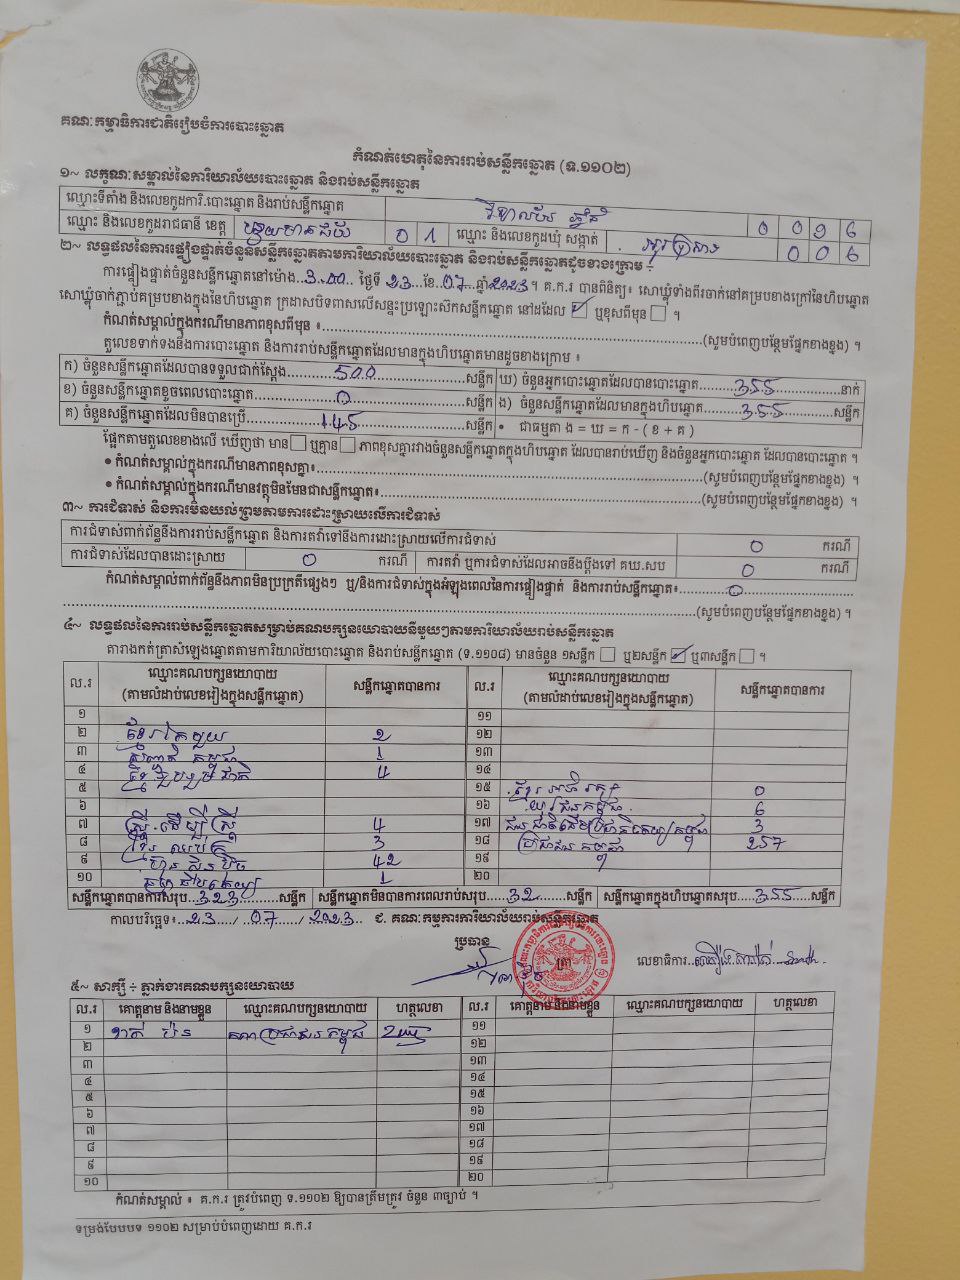 គណៈកម្មាធិការជាតិរៀបចំការបោះឆ្នោត
កំណត់ហេតុនៃការរាប់សន្លឹកឆ្នោត (ទ.១១០២)
១~ លក្ខណៈសម្គាល់នៃការិយាល័យបោះឆ្នោត និងរាប់សន្លឹកឆ្នោត
ឈ្មោះទីតាំង និងលេខកូដការិ.បោះឆ្នោត និងរាប់សន្លឹកឆ្នោត
ឈ្មោះ និងលេខកូដរាជធានី ខេត្ត បន្ទាយមានជ័យ 0 1 ឈ្មោះ និងលេខកូដឃុំ សង្កាត់ 0 0 6
២~ លទ្ធផលនៃការផ្ទៀងផ្ទាត់ចំនួនសន្លឹកឆ្នោតតាមការិយាល័យបោះឆ្នោត និងរាប់សន្លឹកឆ្នោតដូចខាងក្រោម ÷
ការផ្ទៀងផ្ទាត់ចំនួនសន្លឹកឆ្នោតនៅម៉ោង 3.00 ថ្ងៃទី 23 ខែ 07 ឆ្នាំ 2023 ។ គ.ក.រ បានពិនិត្យ៖ សោឃ្លុំទាំងពីរចាក់នៅគម្របខាងក្រៅនៃហិបឆ្នោត
សោឃ្លុំចាក់ភ្ជាប់គម្របខាងក្នុងនៃហិបឆ្នោត ក្រដាសបិទពាសលើសន្ទះប្រឡោះសឹកសន្លឹកឆ្នោត នៅដដែល ☑ ឬខុសពីមុន ☐ ។
កំណត់សម្គាល់ក្នុងករណីមានភាពខុសពីមុន ៖ (សូមបំពេញបន្ថែមផ្នែកខាងខ្នង) ។
តួលេខទាក់ទងនឹងការបោះឆ្នោត និងការរាប់សន្លឹកឆ្នោតដែលមានក្នុងហិបឆ្នោតមានដូចខាងក្រោម ៖
ក) ចំនួនសន្លឹកឆ្នោតដែលបានទទួលជាក់ស្តែង 500 សន្លឹក ឃ) ចំនួនអ្នកបោះឆ្នោតដែលបានបោះឆ្នោត 355 នាក់
ខ) ចំនួនសន្លឹកឆ្នោតខូចពេលបោះឆ្នោត 0 សន្លឹក ង) ចំនួនសន្លឹកឆ្នោតដែលមានក្នុងហិបឆ្នោត 355 សន្លឹក
គ) ចំនួនសន្លឹកឆ្នោតដែលមិនបានប្រើ 145 សន្លឹក • ជាធម្មតា ង = ឃ = ក - ( ខ + គ )
ផ្អែកតាមតួលេខខាងលើ ឃើញថា មាន ☐ ឬគ្មាន ☐ ភាពខុសគ្នារវាងចំនួនសន្លឹកឆ្នោតក្នុងហិបឆ្នោត ដែលបានរាប់ឃើញ និងចំនួនអ្នកបោះឆ្នោត ដែលបានបោះឆ្នោត ។
• កំណត់សម្គាល់ក្នុងករណីមានភាពខុសគ្នា៖ (សូមបំពេញបន្ថែមផ្នែកខាងខ្នង) ។
• កំណត់សម្គាល់ក្នុងករណីមានវត្ថុមិនមែនជាសន្លឹកឆ្នោត៖ (សូមបំពេញបន្ថែមផ្នែកខាងខ្នង) ។
៣~ ការជំទាស់ និងការមិនយល់ព្រមតាមការដោះស្រាយលើការជំទាស់
ការជំទាស់ពាក់ព័ន្ធនឹងការរាប់សន្លឹកឆ្នោត និងការតវ៉ាទៅនឹងការដោះស្រាយលើការជំទាស់ 0 ករណី
ការជំទាស់ដែលបានដោះស្រាយ 0 ករណី ការតវ៉ា ឬការជំទាស់ដែលអាចនឹងប្តឹងទៅ គឃ.សប 0 ករណី
កំណត់សម្គាល់ពាក់ព័ន្ធនឹងភាពមិនប្រក្រតីផ្សេងៗ ឬ/និងការជំទាស់ក្នុងអំឡុងពេលនៃការផ្ទៀងផ្ទាត់ និងការរាប់សន្លឹកឆ្នោត៖ 0
(សូមបំពេញបន្ថែមផ្នែកខាងខ្នង) ។
៤~ លទ្ធផលនៃការរាប់សន្លឹកឆ្នោតសម្រាប់គណបក្សនយោបាយនីមួយៗតាមការិយាល័យរាប់សន្លឹកឆ្នោត
តារាងកត់ត្រាសំឡេងឆ្នោតតាមការិយាល័យបោះឆ្នោត និងរាប់សន្លឹកឆ្នោត (ទ.១១០៨) មានចំនួន ១សន្លឹក ☐ ឬ២សន្លឹក ☑ ឬ៣សន្លឹក ☐ ។
ល.រ ឈ្មោះគណបក្សនយោបាយ (តាមលំដាប់លេខរៀងក្នុងសន្លឹកឆ្នោត) សន្លឹកឆ្នោតបានការ ល.រ ឈ្មោះគណបក្សនយោបាយ (តាមលំដាប់លេខរៀងក្នុងសន្លឹកឆ្នោត) សន្លឹកឆ្នោតបានការ
១ ១១
២ ខ្មែរតែមួយ 2 ១២
៣ 1 ១៣
៤ ខ្មែររួបរួមជាតិ 4 ១៤
៥ ១៥ 0
៦ ១៦ យុវជនកម្ពុជា 6
៧ ស្ត្រីដើម្បីស្ត្រី 4 ១៧ ជនជាតិដើមប្រជាធិបតេយ្យកម្ពុជា 3
៨ 3 ១៨ ប្រជាជនកម្ពុជា 257
៩ ហ៊្វុនស៊ិនប៉ិច 42 ១៩
១០ 1 ២០
សន្លឹកឆ្នោតបានការសរុប 323 សន្លឹក សន្លឹកឆ្នោតមិនបានការពេលរាប់សរុប 32 សន្លឹក សន្លឹកឆ្នោតក្នុងហិបឆ្នោតសរុប 355 សន្លឹក
កាលបរិច្ឆេទ៖ 23 / 07 / 2023 ជ. គណៈកម្មការការិយាល័យរាប់សន្លឹកឆ្នោត
ប្រធាន ត្រា លេខាធិការ
៥~ សាក្សី ÷ ភ្នាក់ងារគណបក្សនយោបាយ
ល.រ គោត្តនាម និងនាមខ្លួន ឈ្មោះគណបក្សនយោបាយ ហត្ថលេខា ល.រ គោត្តនាម និងនាមខ្លួន ឈ្មោះគណបក្សនយោបាយ ហត្ថលេខា
១ គណបប្រជាជនកម្ពុជា ១១
២ ១២
៣ ១៣
៤ ១៤
៥ ១៥
៦ ១៦
៧ ១៧
៨ ១៨
៩ ១៩
១០ ២០
កំណត់សម្គាល់ ៖ គ.ក.រ ត្រូវបំពេញ ទ.១១០២ ឱ្យបានត្រឹមត្រូវ ចំនួន ៣ច្បាប់ ។
ទម្រង់បែបបទ ១១០២ សម្រាប់បំពេញដោយ គ.ក.រ